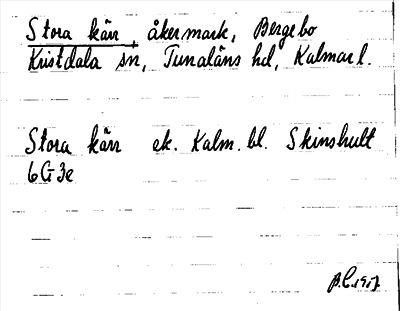 Stora kärr, åkermark, Bergebo
Kristdala sn, Tunaläns hd, Kalmar l.
Stora kärr ek. Kalm. bl. Skinshult
6G3e